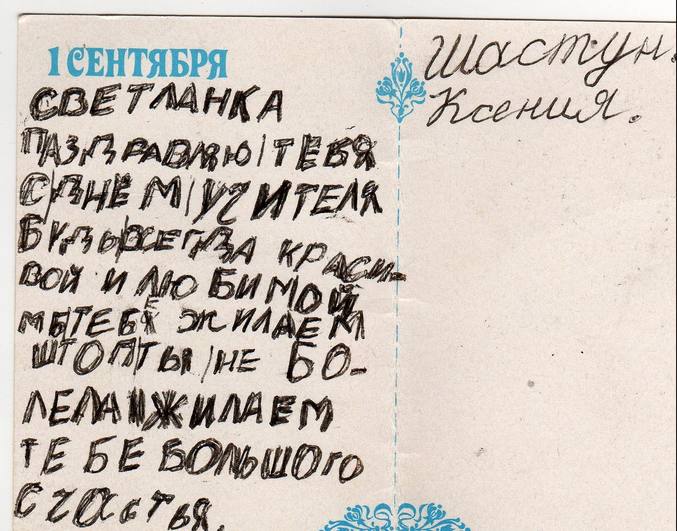 1 СЕНТЯБРЯ
СВЕТЛАНКА
ПАЗДРАВЛЯЮ ТЕБЯ
С ДНЁМ УЧИТЕЛЯ
БУДЬ ВСЕГДА КРАСИ-
ВОЙ И ЛЮБИМОЙ
МЫ ТЕБЕ ЖИЛАЕМ
ШТОПТЫ НЕ БО-
ЛЕЛА ЖИЛАЕМ
ТЕБЕ БОЛЬШОГО
СЧОСТЬЯ.
Шастун.
Ксения.